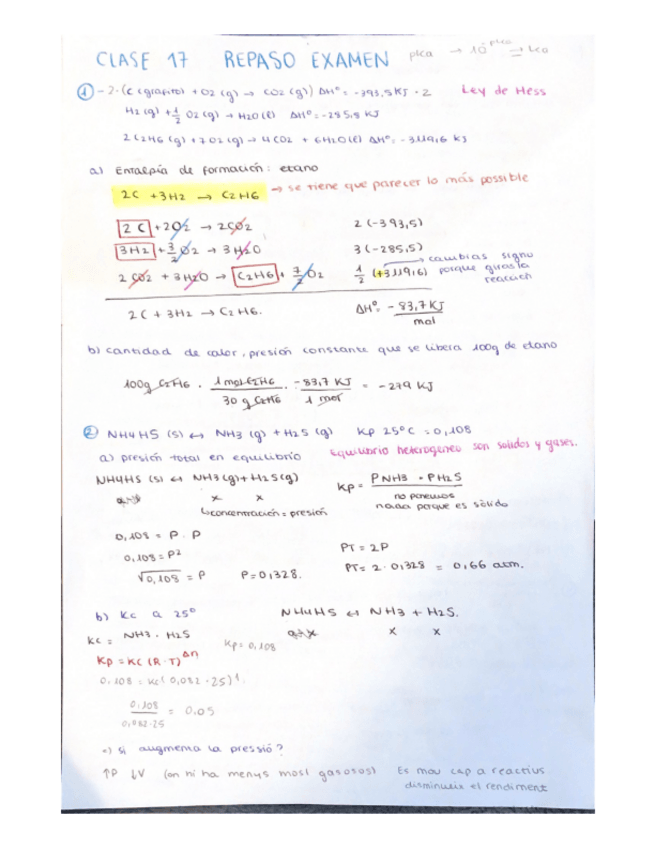 CLASE 17 REPASO EXAMEN pka → 10^-pka → ka
① -2·(C (grafito) + O2 (g) → CO2 (g)) ΔH° = -393,5 KJ · 2 Ley de Hess
H2 (g) + 1/2 O2 (g) → H2O (l) ΔH° = -285,8 KJ
2 C2H6 (g) + 7 O2 (g) → 4 CO2 + 6 H2O (l) ΔH° = -3119,6 KJ
a) Entalpía de formación: etano
2C + 3H2 → C2H6 → se tiene que parecer lo más posible
2C + 2O2 → 2CO2 2 (-393,5)
3H2 + 3/2 O2 → 3H2O 3 (-285,5)
→ cambias signo porque giras la reacción
2CO2 + 3H2O → C2H6 + 7/2 O2 1/2 (+3119,6)
2C + 3H2 → C2H6. ΔH° = -83,7 KJ/mol
b) cantidad de calor, presión constante que se libera 100g de etano
100g C2H6 · 1 mol C2H6/30 g C2H6 · -83,7 KJ/1 mol = -279 KJ
② NH4HS (s) ↔ NH3 (g) + H2S (g) Kp 25°C = 0,108
a) presión total en equilibrio Equilibrio heterogeneo son solidos y gases.
NH4HS (s) ↔ NH3 (g) + H2S (g) Kp = PNH3 · PH2S
x x no ponemos
↳ concentración = presión nada porque es sólido
0,108 = P · P
0,108 = P² PT = 2P
√0,108 = P P = 0,328. PT = 2 · 0,328 = 0,66 atm.
b) Kc a 25° NH4HS ↔ NH3 + H2S.
Kc = NH3 · H2S x x
Kp = 0,108
Kp = Kc (R·T)^Δn
0,108 = Kc (0,082 · 25)
0,108/0,082·25 = 0.05
c) Si augmenta la pressió?
↑P ↓V (on hi ha menys mols gasosos) Es mou cap a reactius
disminueix el rendiment